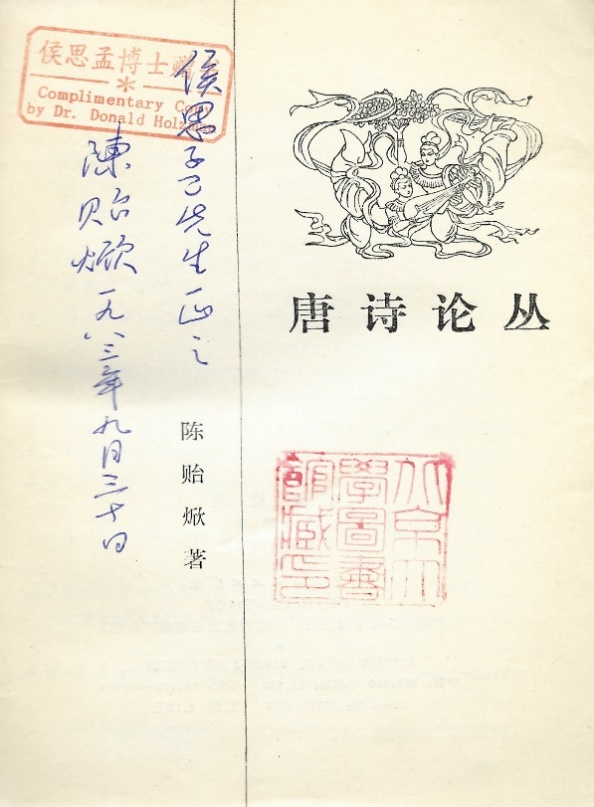 侯思孟博士贈
Complimentary Copy
by Dr. Donald Holzman
侯思孟先生正之
陳貽焮一九八三年九月三十日
唐诗论丛
陈贻焮著
北京大
學圖書
館藏印